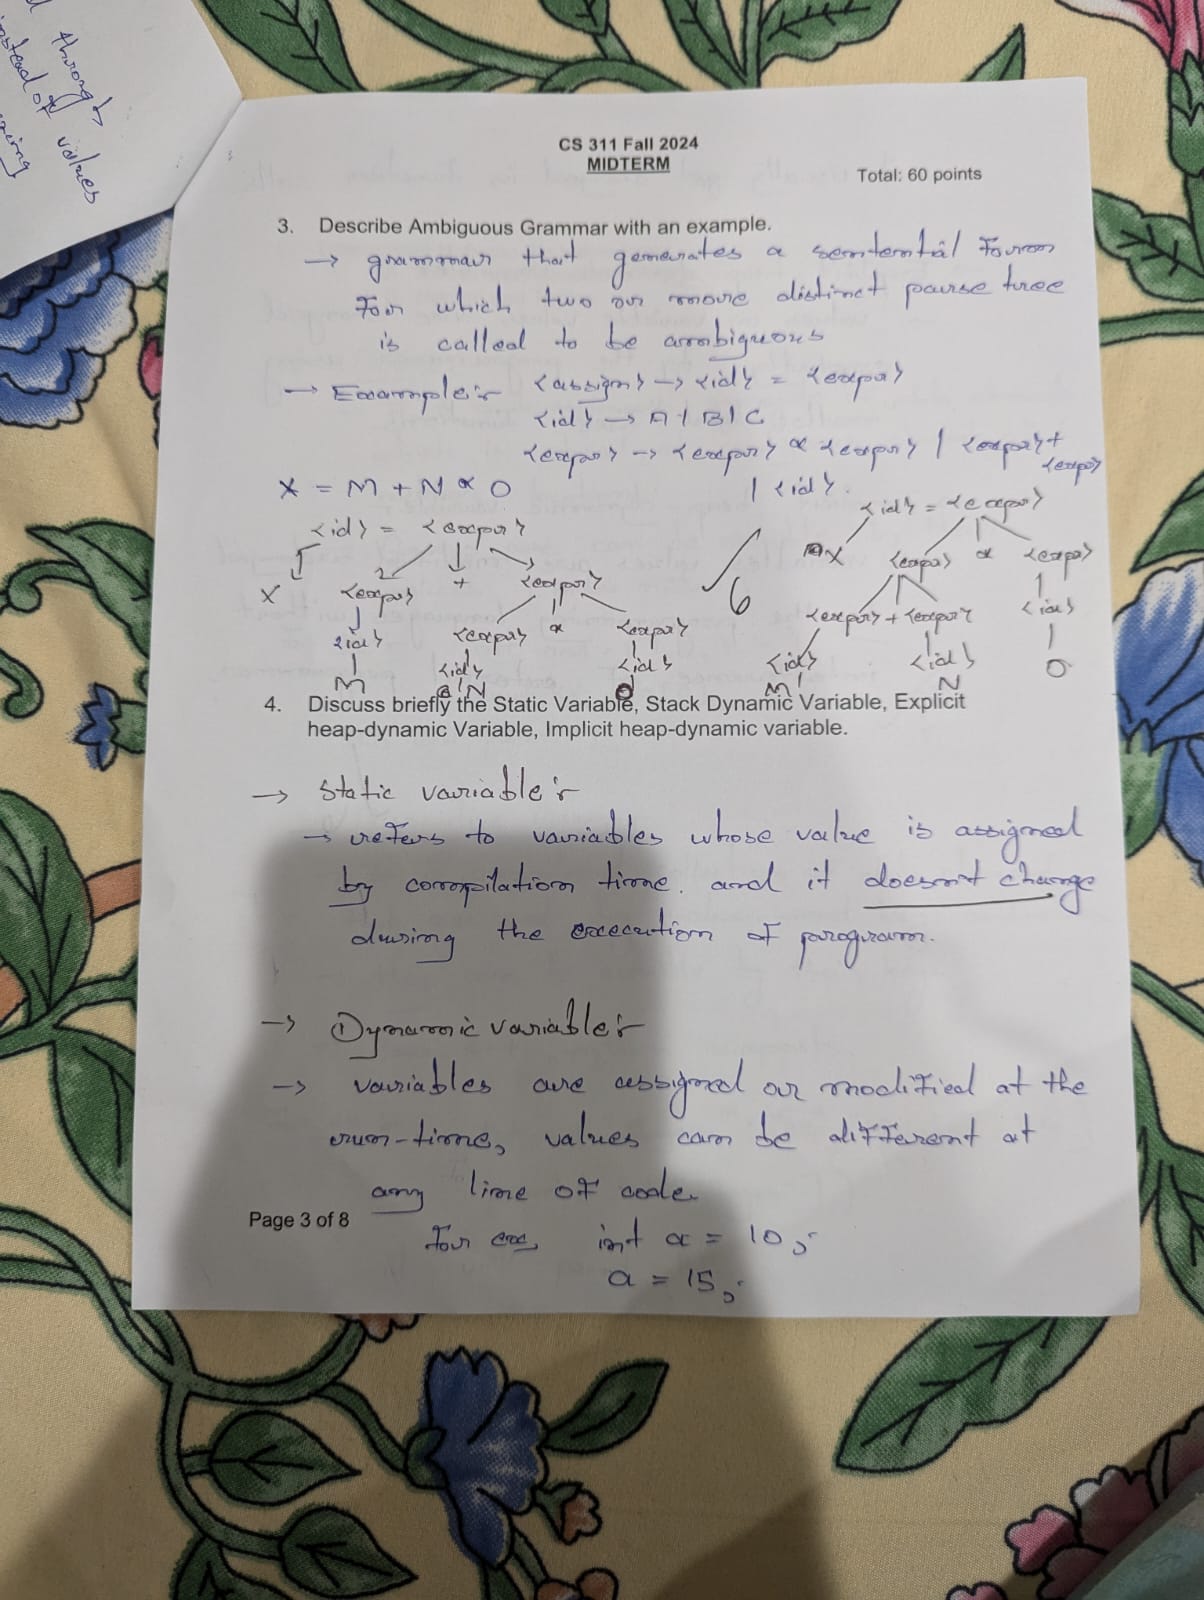 d through
instead of values
CS 311 Fall 2024
MIDTERM
Total: 60 points
3. Describe Ambiguous Grammar with an example.
→ grammar that generates a sentential form
for which two or more distinct parse tree
is called to be ambiguous
→ Example:- <assign> → <id> = <expr>
<id> → A | B | C
<expr> → <expr> * <expr> | <expr> + <expr>
| <id>.
X = M + N * O
<id> = <expr>
X <expr> + <expr>
<id> <expr> * <expr>
M <id> <id>
N O
<id> = <expr>
X <expr> * <expr>
<expr> + <expr> <id>
<id> <id> O
M N
✓ 6
4. Discuss briefly the Static Variable, Stack Dynamic Variable, Explicit
heap-dynamic Variable, Implicit heap-dynamic variable.
→ Static variable:-
→ refers to variables whose value is assigned
by compilation time. and it doesn't change
during the execution of program.
→ Dynamic variable:-
→ variables are assigned or modified at the
run-time, values can be different at
any line of code.
for ex, int a = 10;
a = 15;
Page 3 of 8